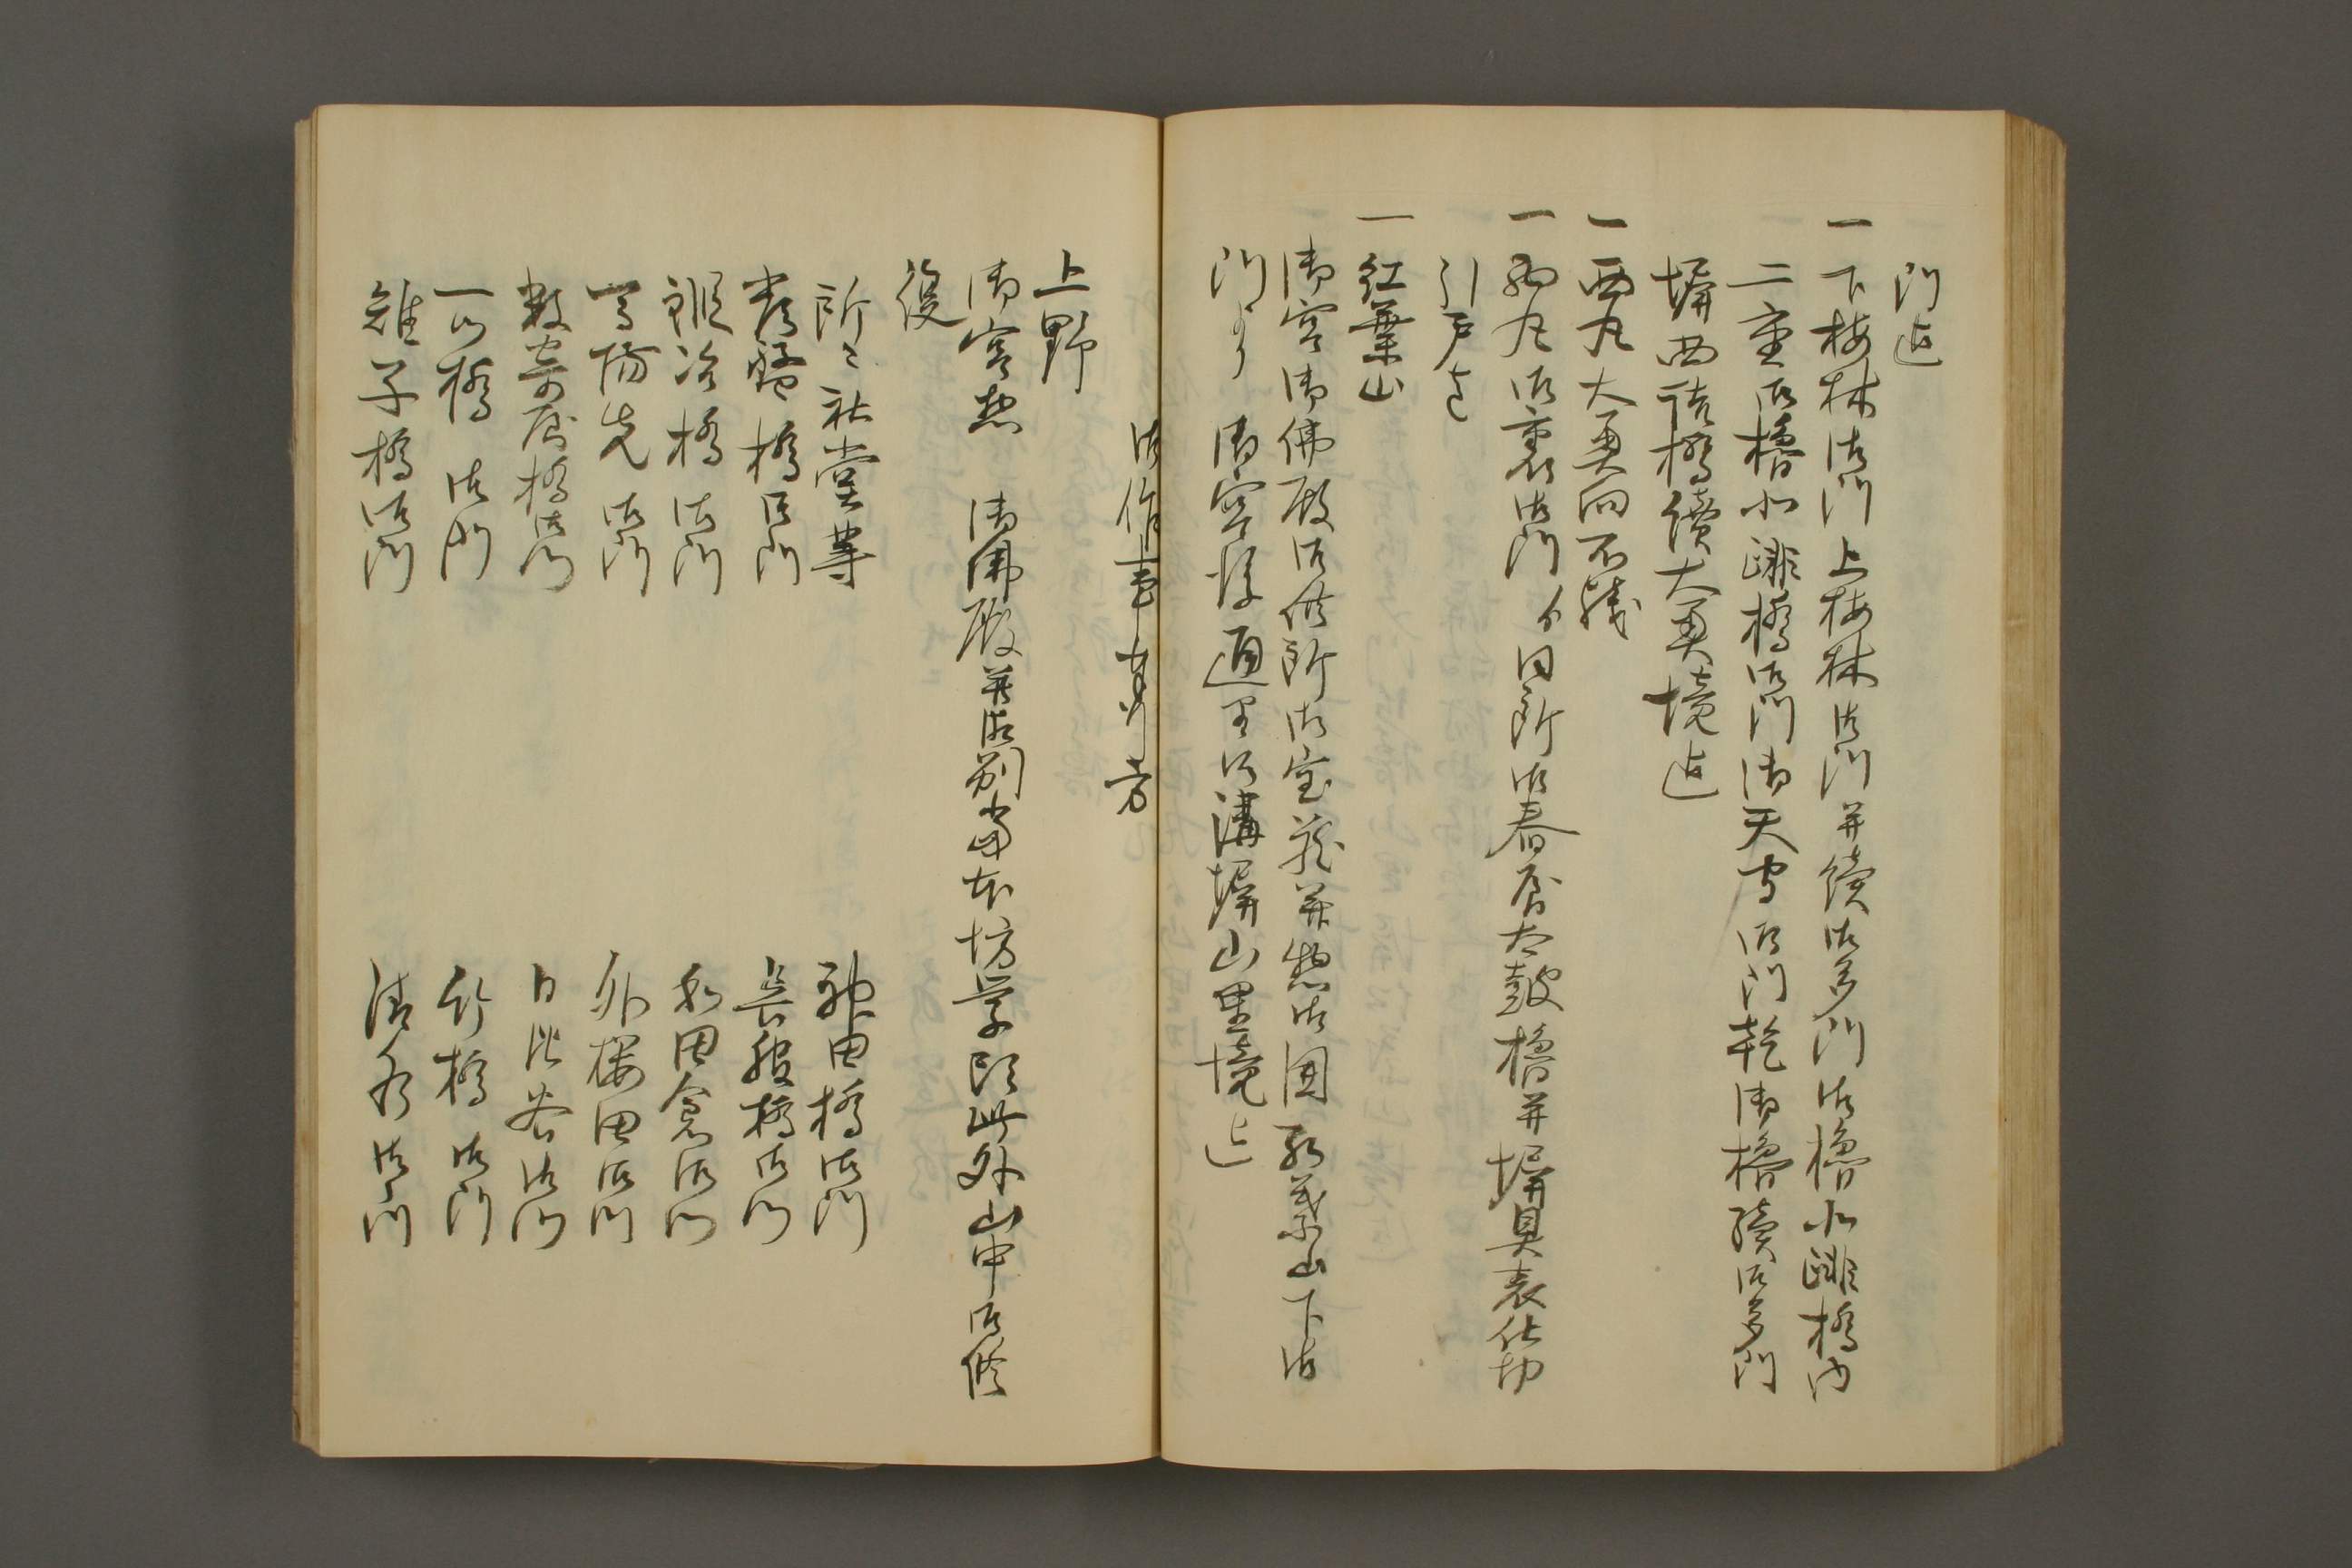 門迄
一 下梅林御門上梅林御門并續御多門御櫓北跳橋内
二重御櫓北跳橋御門御天守御門乾御櫓續御多門
塀西詰橋續大奥境迄
一 西丸大奥向不残
一 西丸御裏御門より同所御春屋太鼓櫓并塀奥表仕切
引戸迄
一 紅葉山
御宮御佛殿御供所御宝蔵并惣御囲紅葉山下御
門より 御宮後通矢来溝塀山里境迄
御作事方
上野
御宮惣 御佛殿并御別當本坊学頭此外山中御修
復
所々社堂等
常盤橋御門
鍛冶橋御門
馬場先御門
数寄屋橋御門
一ツ橋御門
雉子橋御門
神田橋御門
呉服橋御門
和田倉御門
外桜田御門
日比谷御門
竹橋御門
清水御門